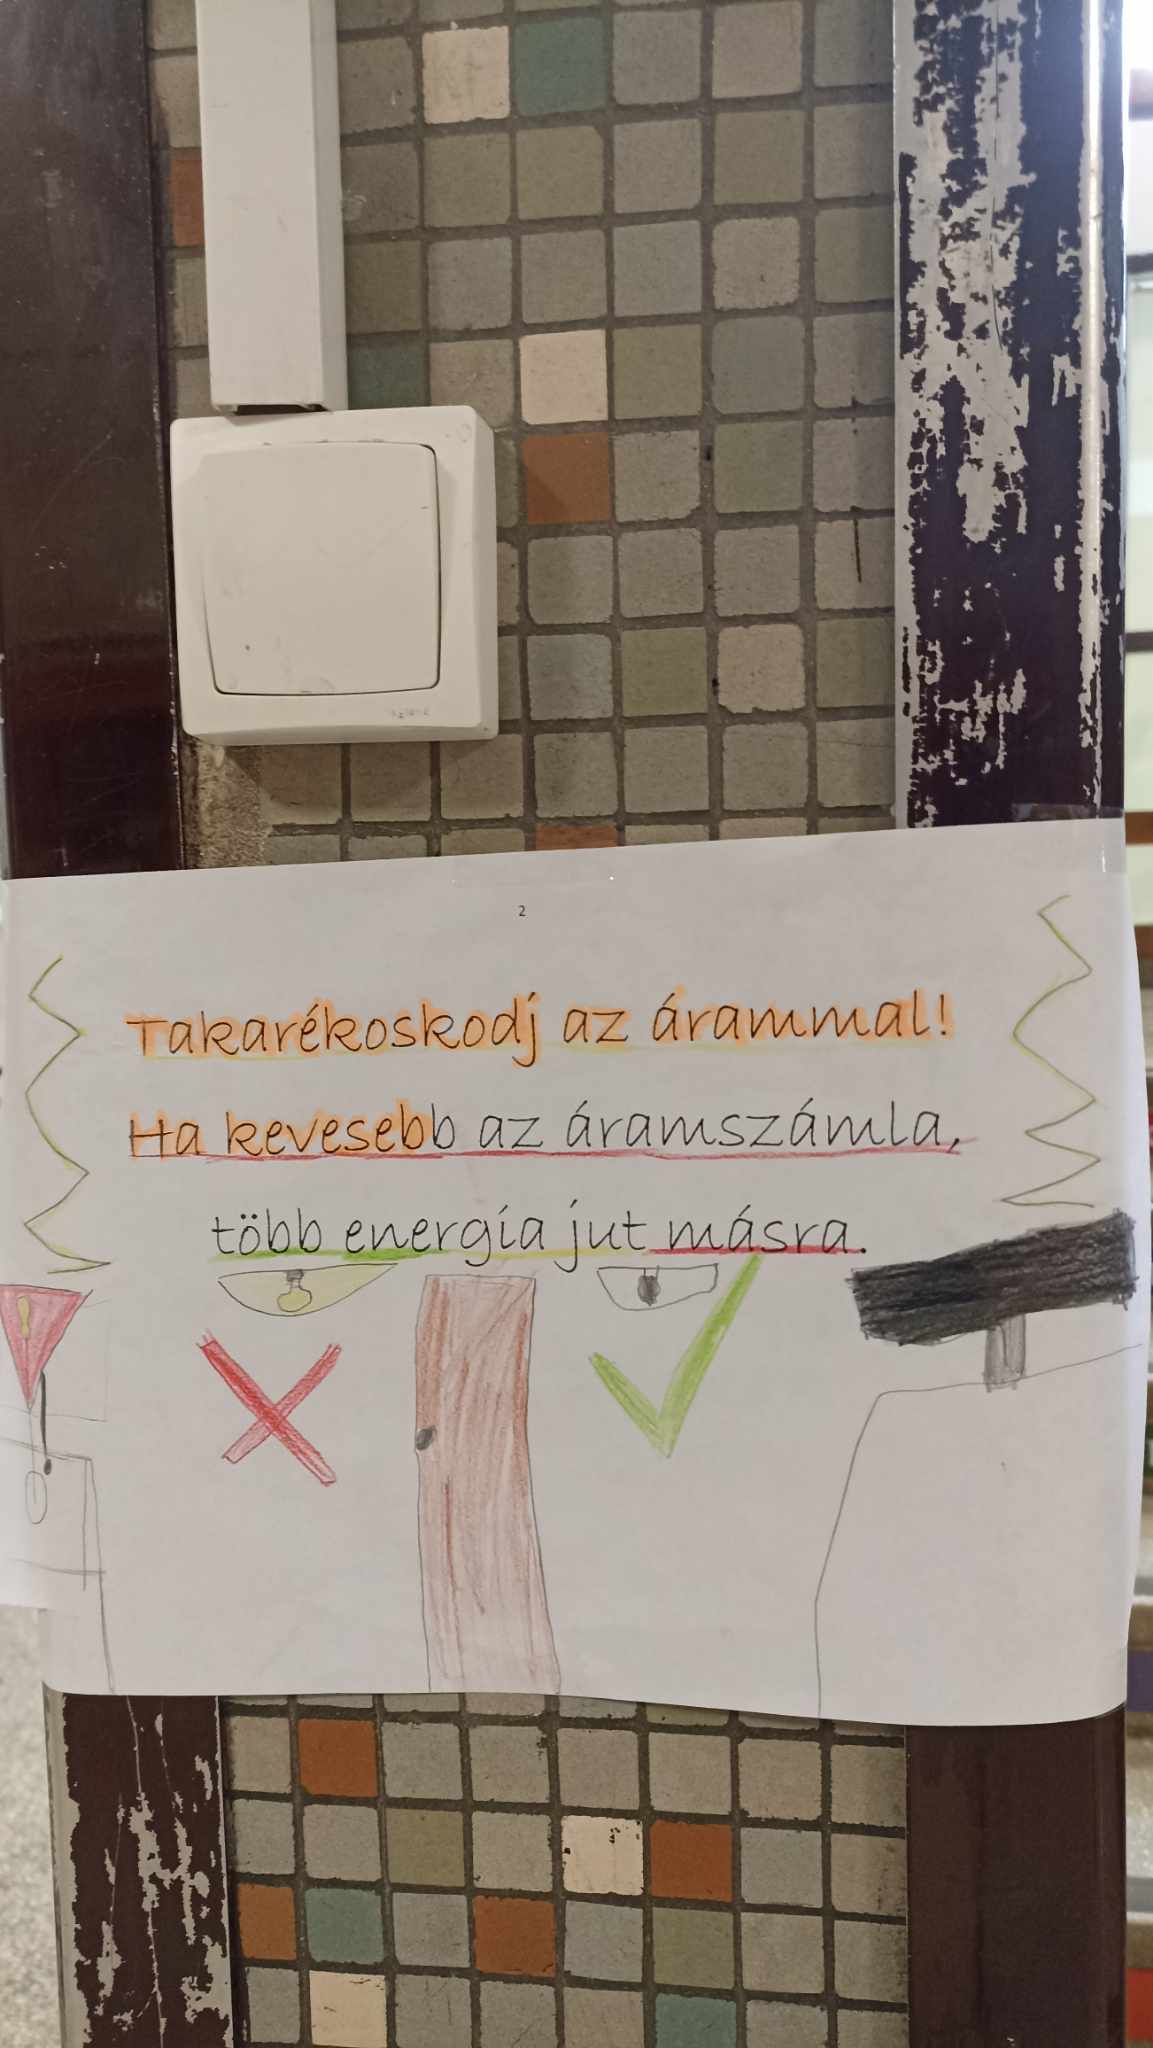 2
Takarékoskodj az árammal!
Ha kevesebb az áramszámla,
több energia jut másra.